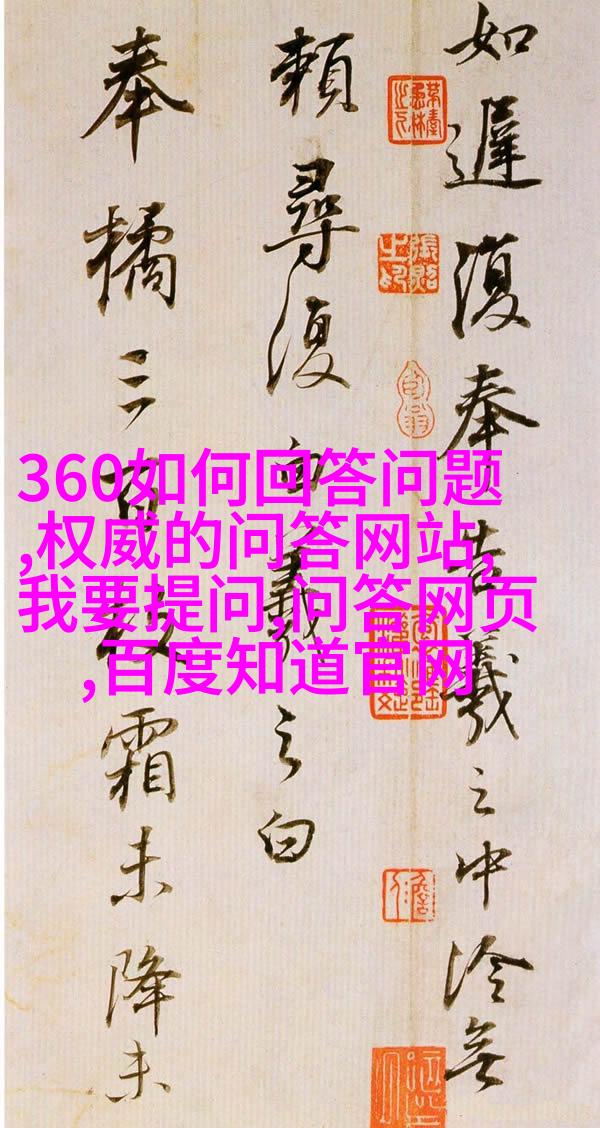 360如何回答问题
,权威的问答网站,
我要提问,问答网页
,百度知道官网
如遲復奉告羲之中冷無
賴尋復白羲之白
奉橘三百枚霜未降未